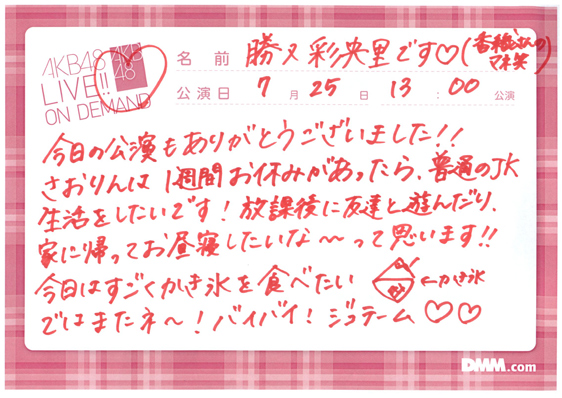 AKB48
LIVE!!
ON DEMAND
AKB
48
名前 勝又彩央里です♡(香織さんのマネ笑)
公演日 7月25日 13:00公演
今日の公演もありがとうございました!!
さおりんは1週間お休みがあったら、普通のJK
生活をしたいです!放課後に友達と遊んだり、
家に帰ってお昼寝したいな〜って思います!!
今日はすごくかき氷を食べたい ←かき氷
ではまたネ〜!バイバイ!ジュテーム♡♡
DMM.com